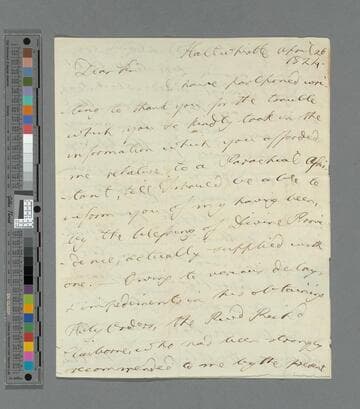 Haltwhistle April 26
1824
Dear Sir
I have postponed wri
-ting to thank you for the trouble
which you so kindly took in the
information which you afforded
me relative to a Parochial Assi
-tant, till I should be able to
inform you of my having been,
by the blessing of Divine Provi
-dence, actually supplied with
one. Owing to various delays,
& impediments in his obtaining
Holy Orders, the Revd Richd
Clairborne, who had been strongly
recommended to me by the